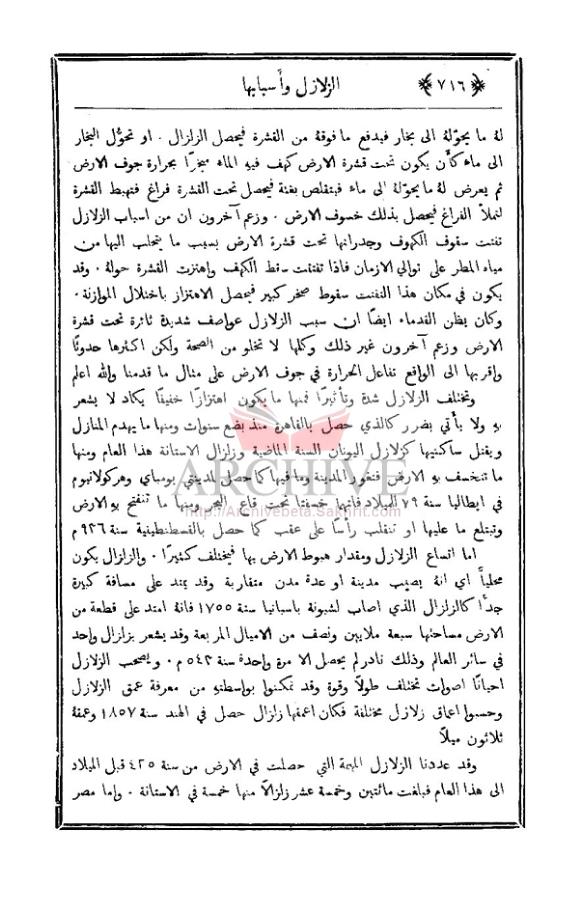 ﴿٧١٦﴾ الزلازل وأسبابها
لهُ ما يحوّلهُ الى بخار فيدفع ما فوقهُ من القشرة فيحصل الزلزال . او تحوُّل البخار
الى ماء كأن يكون تحت قشرة الارض كهف فيهِ الماء متبخرًا بحرارة جوف الارض
ثم يعرض لهُ ما يحوّلهُ الى ماء فيتقلص بغتة فيحصل تحت القشرة فراغ فتهبط القشرة
لتملأ الفراغ فيحصل بذلك خسوف الارض . وزعم آخرون ان من اسباب الزلازل
تفتت سقوف الكهوف وجدرانها تحت قشرة الارض بسبب ما يتحلب اليها من
مياه المطر على توالي الازمان فاذا تفتتت سقط الكهف واهتزت القشرة حولهُ . وقد
يكون في مكان هذا التفتت سقوط صخر كبير فيحصل الاهتزاز باختلال الموازنة .
وكان يظن القدماء ايضًا ان سبب الزلازل عواصف شديدة ثائرة تحت قشرة
الارض وزعم آخرون غير ذلك وكلها لا تخلو من الصحة ولكن اكثرها حدوثًا
واقربها الى الواقع تفاعل الحرارة في جوف الارض على مثال ما قدمنا والله اعلم
وتختلف الزلازل شدة وتأثيرًا فمنها ما يكون اهتزازًا خفيفًا يكاد لا يشعر
بهِ ولا يأتي بضرر كالذي حصل بالقاهرة منذ بضع سنوات ومنها ما يهدم المنازل
ويقتل ساكنيها كزلازل اليونان السنة الماضية وزلزال الاستانة هذا العام ومنها
ما تنخسف بهِ الارض فتغور المدينة وما فيها كما حصل لمدينتي بومباي وهركولانيوم
في ايطاليا سنة ٧٩ للميلاد فانها خسفتا تحت قاع البحر ومنها ما تنفتح بهِ الارض
وتبتلع ما عليها او تنقلب رأسًا على عقب كما حصل بالقسطنطينية سنة ٩٣٦ م
اما اتساع الزلازل ومقدار هبوط الارض بها فيختلف كثيرًا . والزلزال يكون
محليًّا اي انهُ يصيب مدينة او عدة مدن متقاربة وقد يمتد على مسافة كبيرة
جدًّا كالزلزال الذي اصاب لشبونة باسبانيا سنة ١٧٥٥ فانهُ امتد على قطعة من
الارض مساحتها سبعة ملايين ونصف من الاميال المربعة وقد يشعر بزلزال واحد
في سائر العالم وذلك نادر لم يحصل الا مرة واحدة سنة ٥٤٣ م . ويصحب الزلازل
احيانًا اصوات تختلف طولًا وقوة وقد تمكنوا بواسطتهِ من معرفة عمق الزلازل
وحسبوا اعماق زلازل مختلفة فكان اعمقها زلزال حصل في الهند سنة ١٨٥٧ وعمقهُ
ثلاثون ميلًا
وقد عددنا الزلازل المهمة التي حصلت في الارض من سنة ٤٢٥ قبل الميلاد
الى هذا العام فبلغت مائتين وخمسة عشر زلزالًا منها خمسة في الاستانة . واما مصر
ARCHIVE
http://Archivebeta.Sakhrit.com